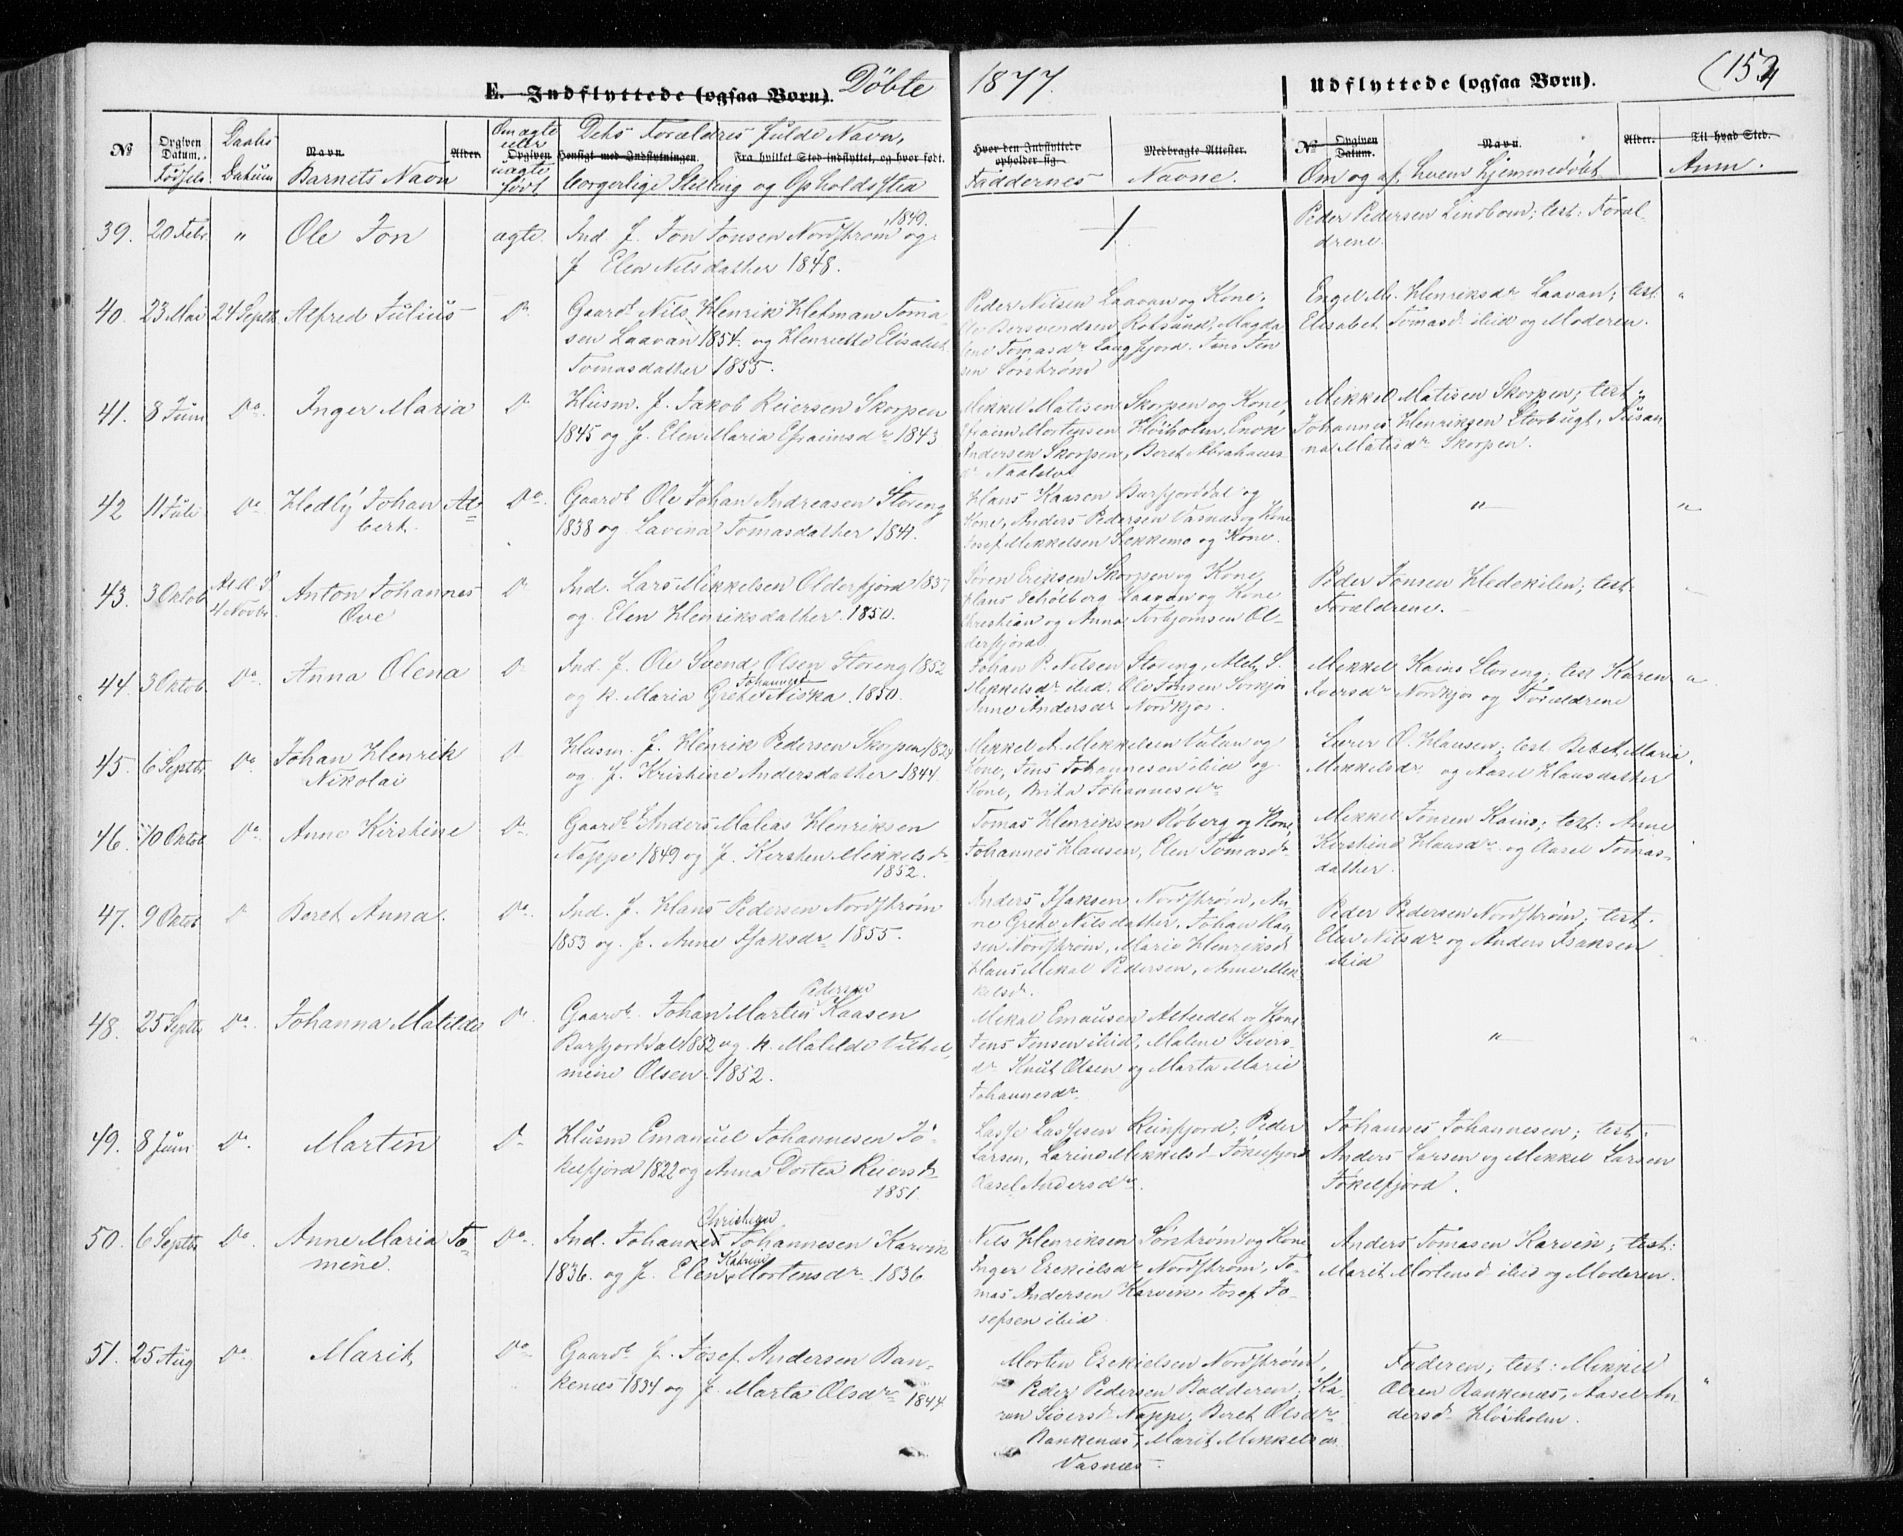 E. Indflyttede (ogsaa Børn). Døbte 1877. Udflyttede (ogsaa Børn). (152
No Opgiven Datum. Fødsels Daabs Datum Navn. Alder. Barnets Navn Om ægte eller uægte født Opgiven Hensigt med Indflytningen. Fra hvilket Sted indflyttet, og hvor født.
Dets Forældres fulde Navn, borgerlige Stilling og Opholdssted
Hvor den Indflyttede opholder sig. Medbragte Attester. Faddernes Navne.
No Opgiven Datum. Navn. Alder. Til hvad Sted. Om og af hvem hjemmedøbt Anm.
39. 20 Febr " Ole Jon ægte. Ind. f. Jon Jonsen Nordstrøm 1849. og
f. Elen Nilsdatter 1848.
Peder Pedersen Lindbom; test: Foræl-
drene.
40. 23 Mai 24 Septb Alfred Julius Do Gaardb Nils Henrik Hetman Toma-
sen Laavan 1854. og Henriette Elisabet
Tomasdatter 1855.
Peder Nilsen Laavan og Kone,
Ole Barsvendsen Rotsund, Magda
lene Tomasdr Langfjord. Jens Jen
sen Sørstrøm
Engel M. Henriksdr Laavan; test "
Elisabet Tomasd. ibid og Moderen.
41. 8 Juni Do. Inger Maria Do Husm. f. Jakob Reiersen Skorpen
1845 og f. Elen Maria Efraimsdr 1843
Mikkel Matisen Skorpen og Kone,
Efraim Mortensen Høiholm, Enok
Andersen Skorpen, Beret Abrahams
dr Naalslv
Mikkel Matisen Skorpen; test "
Johannes Henriksen Storbugt, Susan
na Matisdr Skorpen.
42 11 Juli Do Hedly Johan Al-
bert. Do. Gaardb Ole Johan Andreasen Storeng
1838 og Lavina Tomasdatter 1841.
Hans Kaasen Burfjorddal og
Kone, Anders Pedersen Vasnæs og Kone
Josef Mikkelsen Sekkemo og Kone.
" "
43. 3 Oktob 4 Novbr. Anton Johannes
Ove Do Ind. Lars Mikkelsen Olderfjord 1837
og Elen Henriksdatter 1850.
Søren Eriksen Skorpen og Kone,
Hans Schølberg Laavan og Kone
Christian og Anna Torbjørnsen Ol-
derfjord
Peder Jonsen Hedekilen; test:
Forældrene.
44. 3 Oktob. Do. Anna Olena Do Ind. f. Ole Svend Olsen Storeng 1852
og k. Maria Grete Johannesd Niska. 1850.
Johan P. Nilsen Storeng, Alet S.
Mikkelsdr ibid. Ole Jonsen Sørkjos
Anne Andersdr Nordkjos.
Mikkel Kains Storeng; test Karen "
Iversdr Nordkjos og Forældrene
45. 6 Septbr. Do Johan Henrik
Nikolai Do Husm. f. Henrik Pedersen Skorpen 1824
og f. Kristine Andersdatter 1844.
Mikkel A. Mikkelsen Valan og
Kone, Jens Johannesen ibid og
Kone, Brita Johannesdr
Sivert O. Hansen; test Beret Maria
Mikkelsdr og Aasel Hansdatter
46. 10 Oktob Do Anne Kirstine Do Gaardb Anders Matias Henriksen
Nappe 1849 og f. Kirsten Mikkelsdr
1852.
Tomas Henriksen Røberg og Kone,
Johannes Hansen, Elen Tomasdr
Mikkel Jonsen Kains; test: Anne
Kirstine Hansdr og Aasel Tomas-
datter.
47. 9 Oktob Do Beret Anna. Do. Ind. f. Hans Pedersen Nordstrøm
1853 og f. Anne Isaksdr 1855.
Anders Isaksen Nordstrøm, An-
ne Grete Nilsdatter, Johan Han
sen Nordstrøm, Marie Henriksd
Hans Mikal Pedersen, Anne Mik
kelsd.
Peder Pedersen Nordstrøm; test.
Elen Nilsdr og Anders Isaksen
ibid
48. 25 Septbr Do. Johanna Matilde Do Gaardb. Johan Martin Pedersen Kaasen
Burfjorddal 1852 og k. Matilde Vilhel
mine Olsen 1852.
Mikal Emausen Alteidet og Kone
Jens Jensen ibid, Maline Sivers-
dr Knut Olsen og Marta Marie
Johannesdr.
" "
49. 8 Juni Do. Martin Do Husm Emanuel Johannesen Jø-
kelfjord 1822 og Anna Dortea Reiersdr
1851
Lasse Lassesen Reinfjord; Peder
Larsen, Larine Mikkelsd Jøkelfjord
Aasel Andersdr.
Johannes Johannesen; test:
Anders Larsen og Mikkel Larsen
Jøkelfjord.
50. 6 Septbr Do. Anne Maria To-
mine. Do. Ind. Johannes Christian Johannesen Karvik
1836. og f. Elen Katrine Mortensdr. 1836
Nils Henriksen Sørstrøm og Kone
Inger Ezekielsdr Nordstrøm, To-
mas Andersen Karvik, Josef Jo-
sefsen ibid.
Anders Tomasen Karvik; test:
Marit Mortensd ibid og Moderen.
51. 25 Aug Do Marit Do Gaardb f. Josef Andersen Ban-
kenæs 1834 og f. Marta Olsdr 1844
Morten Ezekielsen Nordstrøm,
Peder Pedersen Badderen, Ka-
ren Siversd Nappe, Beret Olsdr
Bankenæs, Marit Mikkelsdr
Vasnæs.
Faderen; test: Mikkel "
Olsen Bankenæs, Aasel An
dersdr Høiholm.